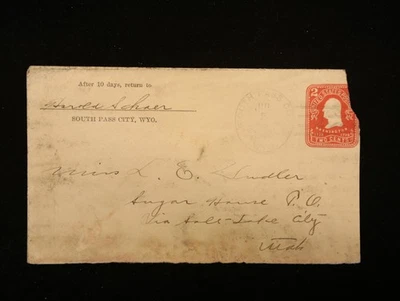 After 10 days, return to
Harold Schaer
SOUTH PASS CITY, WYO.
2
UNITED STATES
2
WASHINGTON
TWO CENTS
Miss L. E. Hudler
Sugar House P. O.
via Salt-Lake City
Utah